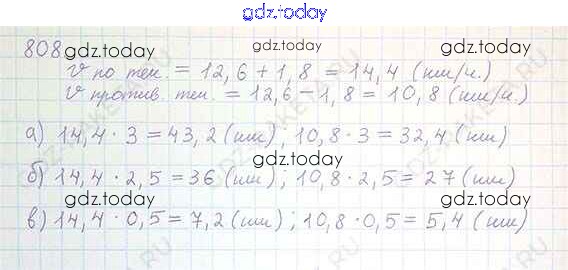 gdz.today
808 gdz.today gdz.today gdz.today
V по теч. = 12,6 + 1,8 = 14,4 (км/ч.)
V против. теч. = 12,6 - 1,8 = 10,8 (км/ч.)
а) 14,4 · 3 = 43,2 (км), 10,8 · 3 = 32,4 (км)
gdz.today
б) 14,4 · 2,5 = 36 (км); 10,8 · 2,5 = 27 (км)
gdz.today gdz.today
в) 14,4 · 0,5 = 7,2 (км); 10,8 · 0,5 = 5,4 (км)